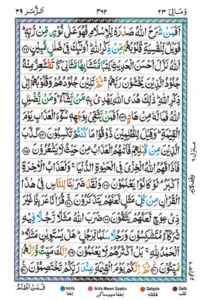 وَمَالِيَ ٢٣
الزُّمَر ٣٩
اَفَمَنْ شَرَحَ اللّٰهُ صَدْرَهٗ لِلْاِسْلَامِ فَهُوَ عَلٰى نُوْرٍ مِّنْ رَّبِّهٖ
فَوَيْلٌ لِّلْقٰسِيَةِ قُلُوْبُهُمْ مِّنْ ذِكْرِ اللّٰهِ اُولٰٓئِكَ فِيْ ضَلٰلٍ مُّبِيْنٍ
اَللّٰهُ نَزَّلَ اَحْسَنَ الْحَدِيْثِ كِتٰبًا مُّتَشَابِهًا مَّثَانِيَ تَقْشَعِرُّ مِنْهُ
جُلُوْدُ الَّذِيْنَ يَخْشَوْنَ رَبَّهُمْ ثُمَّ تَلِيْنُ جُلُوْدُهُمْ وَقُلُوْبُهُمْ اِلٰى
ذِكْرِ اللّٰهِ ذٰلِكَ هُدَى اللّٰهِ يَهْدِيْ بِهٖ مَنْ يَّشَآءُ وَمَنْ يُّضْلِلِ
اللّٰهُ فَمَا لَهٗ مِنْ هَادٍ اَفَمَنْ يَّتَّقِيْ بِوَجْهِهٖ سُوْٓءَ الْعَذَابِ يَوْمَ
الْقِيٰمَةِ وَقِيْلَ لِلظّٰلِمِيْنَ ذُوْقُوْا مَا كُنْتُمْ تَكْسِبُوْنَ كَذَّبَ
الَّذِيْنَ مِنْ قَبْلِهِمْ فَاَتٰىهُمُ الْعَذَابُ مِنْ حَيْثُ لَا يَشْعُرُوْنَ
فَاَذَاقَهُمُ اللّٰهُ الْخِزْيَ فِي الْحَيٰوةِ الدُّنْيَا وَلَعَذَابُ الْاٰخِرَةِ
اَكْبَرُ لَوْ كَانُوْا يَعْلَمُوْنَ وَلَقَدْ ضَرَبْنَا لِلنَّاسِ فِيْ هٰذَا
الْقُرْاٰنِ مِنْ كُلِّ مَثَلٍ لَّعَلَّهُمْ يَتَذَكَّرُوْنَ قُرْاٰنًا عَرَبِيًّا غَيْرَ
ذِيْ عِوَجٍ لَّعَلَّهُمْ يَتَّقُوْنَ ضَرَبَ اللّٰهُ مَثَلًا رَّجُلًا فِيْهِ
شُرَكَآءُ مُتَشٰكِسُوْنَ وَرَجُلًا سَلَمًا لِّرَجُلٍ هَلْ يَسْتَوِيٰنِ مَثَلًا
اَلْحَمْدُ لِلّٰهِ بَلْ اَكْثَرُهُمْ لَا يَعْلَمُوْنَ اِنَّكَ مَيِّتٌ وَّاِنَّهُمْ
مَّيِّتُوْنَ ثُمَّ اِنَّكُمْ يَوْمَ الْقِيٰمَةِ عِنْدَ رَبِّكُمْ تَخْتَصِمُوْنَ